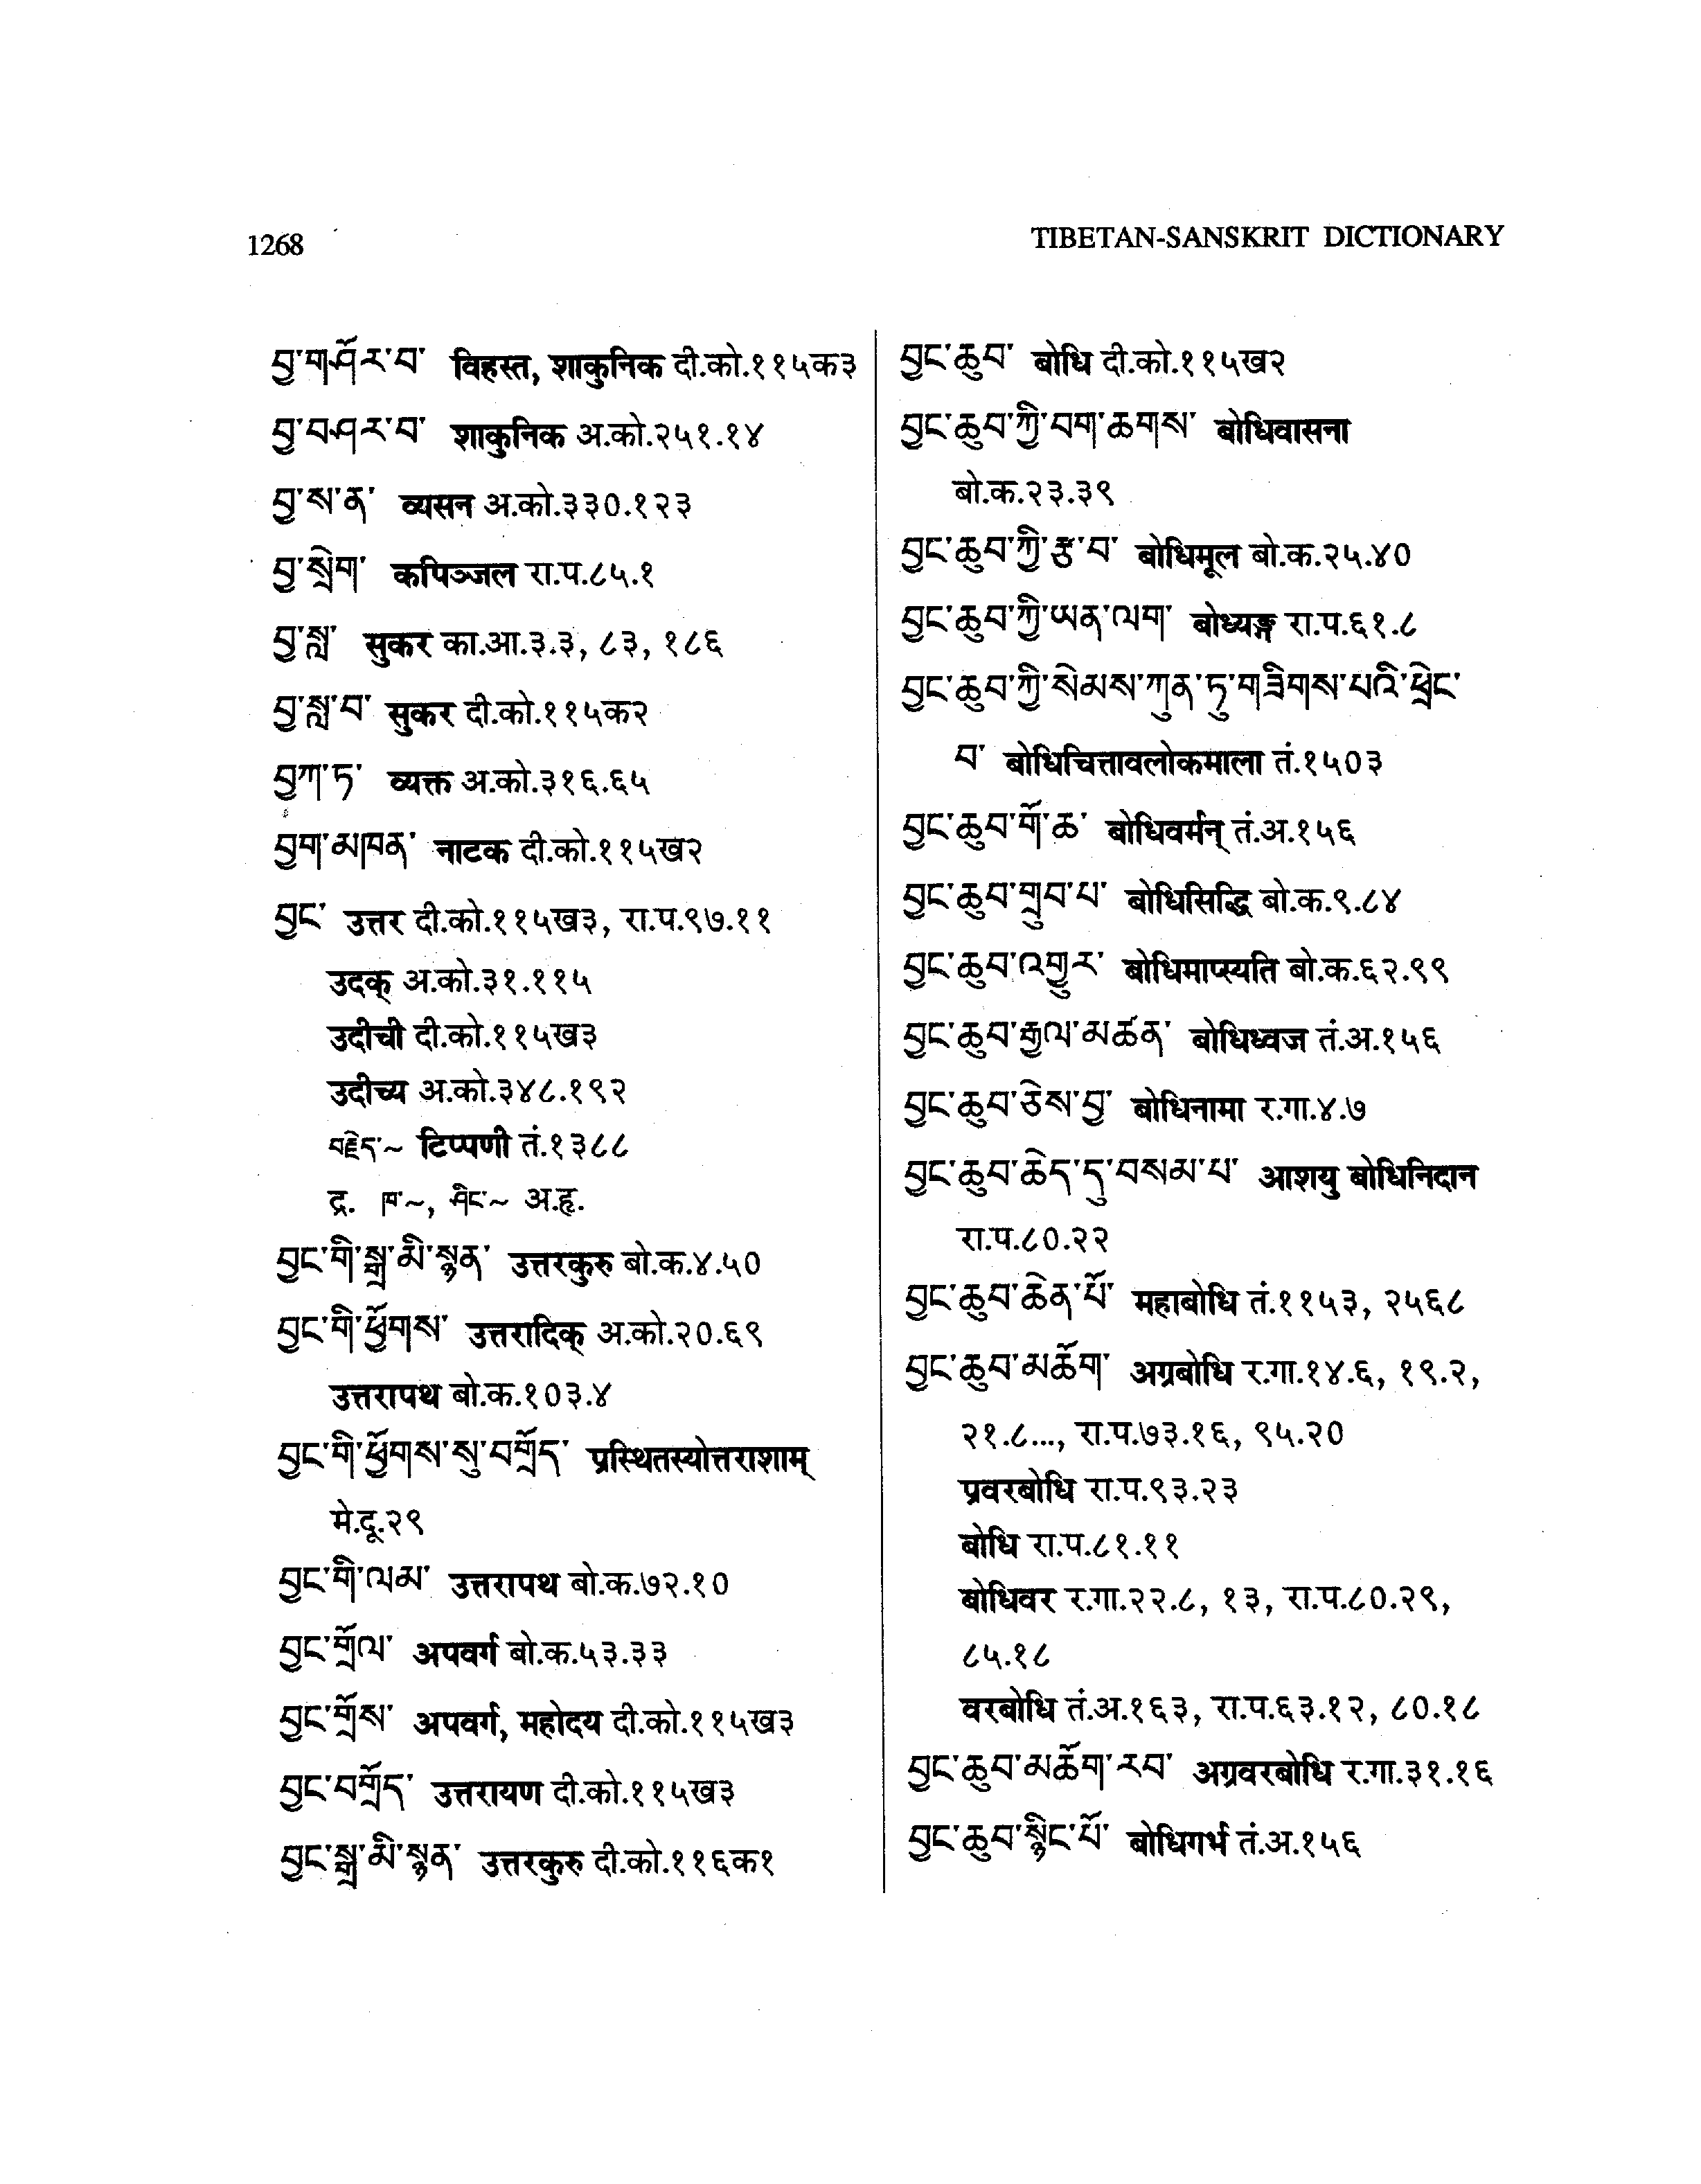 1268
TIBETAN-SANSKRIT DICTIONARY
བྱ་གཤོར་བ་ विहस्त, शाकुनिक दी.को.११५क३
བྱ་བཤར་བ་ शाकुनिक अ.को.२५१.१४
བྱ་ས་ན་ व्यसन अ.को.३३०.१२३
བྱ་སྲེག་ कपिञ्जल रा.प.८५.१
བྱ་སླ་ सुकर का.आ.३.३, ८३, १८६
བྱ་སླ་བ་ सुकर दी.को.११५क२
བྱཀ་ཏ་ व्यक्त अ.को.३१६.६५
བྱག་མཁན་ नाटक दी.को.११५ख२
བྱང་ उत्तर दी.को.११५ख३, रा.प.९७.११
उदक् अ.को.३१.११५
उदीची दी.को.११५ख३
उदीच्य अ.को.३४८.१९२
བརྗེད་~ टिप्पणी तं.१३८८
द्र. ཁ་~, ཤིང་~ अ.हृ.
བྱང་གི་སྒྲ་མི་སྙན་ उत्तरकुरु बो.क.४.५०
བྱང་གི་ཕྱོགས་ उत्तरादिक् अ.को.२०.६९
उत्तरापथ बो.क.१०३.४
བྱང་གི་ཕྱོགས་སུ་བགྲོད་ प्रस्थितस्योत्तराशाम्
मे.दू.२९
བྱང་གི་ལམ་ उत्तरापथ बो.क.७२.१०
བྱང་གྲོལ་ अपवर्ग बो.क.५३.३३
བྱང་གྲོས་ अपवर्ग, महोदय दी.को.११५ख३
བྱང་བགྲོད་ उत्तरायण दी.को.११५ख३
བྱང་སྒྲ་མི་སྙན་ उत्तरकुरु दी.को.११६क१
བྱང་ཆུབ་ बोधि दी.को.११५ख२
བྱང་ཆུབ་ཀྱི་བག་ཆགས་ बोधिवासना
बो.क.२३.३९
བྱང་ཆུབ་ཀྱི་རྩ་བ་ बोधिमूल बो.क.२५.४०
བྱང་ཆུབ་ཀྱི་ཡན་ལག་ बोध्यङ्ग रा.प.६१.८
བྱང་ཆུབ་ཀྱི་སེམས་ཀུན་ཏུ་གཟིགས་པའི་ཕྲེང་
བ་ बोधिचित्तावलोकमाला तं.१५०३
བྱང་ཆུབ་གོ་ཆ་ बोधिवर्मन् तं.अ.१५६
བྱང་ཆུབ་གྲུབ་པ་ बोधिसिद्धि बो.क.९.८४
བྱང་ཆུབ་འགྱུར་ बोधिमाप्स्यति बो.क.६२.९९
བྱང་ཆུབ་རྒྱལ་མཚན་ बोधिध्वज तं.अ.१५६
བྱང་ཆུབ་ཅེས་བྱ་ बोधिनामा र.गा.४.७
བྱང་ཆུབ་ཆེད་དུ་བསམ་པ་ आशयु बोधिनिदान
रा.प.८०.२२
བྱང་ཆུབ་ཆེན་པོ་ महाबोधि तं.११५३, २५६८
བྱང་ཆུབ་མཆོག་ अग्रबोधि र.गा.१४.६, १९.२,
२१.८..., रा.प.७३.१६, ९५.२०
प्रवरबोधि रा.प.९३.२३
बोधि रा.प.८१.११
बोधिवर र.गा.२२.८, १३, रा.प.८०.२९,
८५.१८
वरबोधि तं.अ.१६३, रा.प.६३.१२, ८०.१८
བྱང་ཆུབ་མཆོག་རབ་ अग्रवरबोधि र.गा.३१.१६
བྱང་ཆུབ་སྙིང་པོ་ बोधिगर्भ तं.अ.१५६